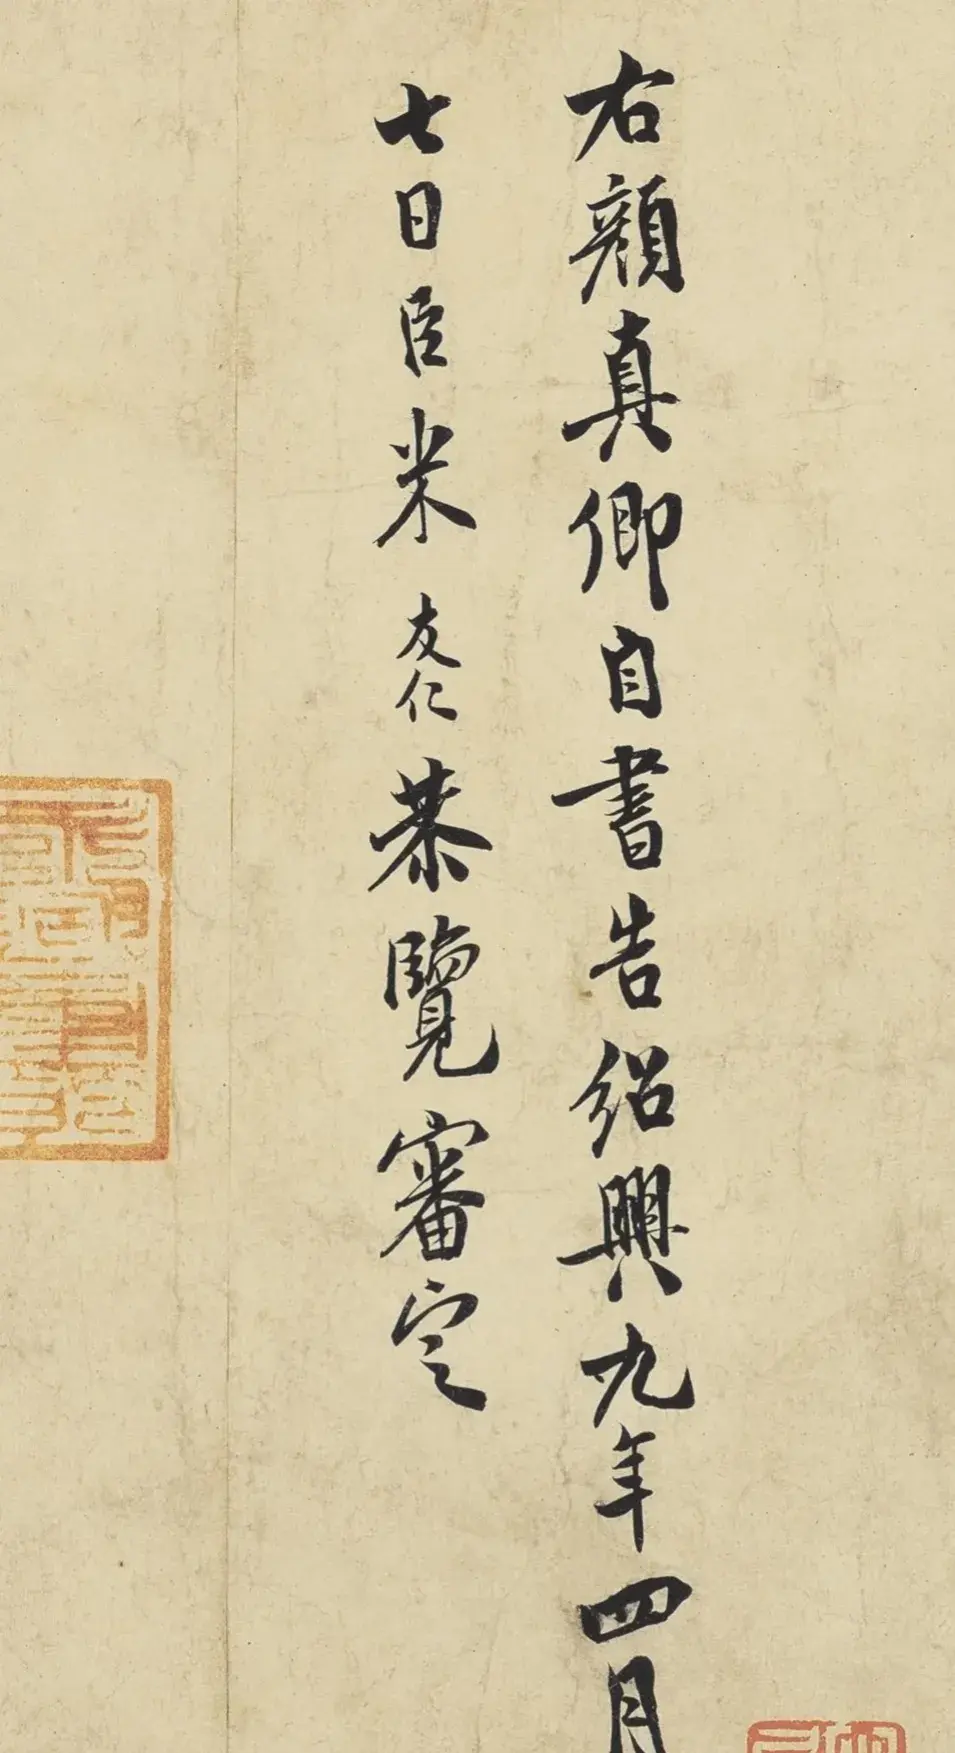 右顔真卿自書告紹興九年四月
七日臣米友仁恭覽審定